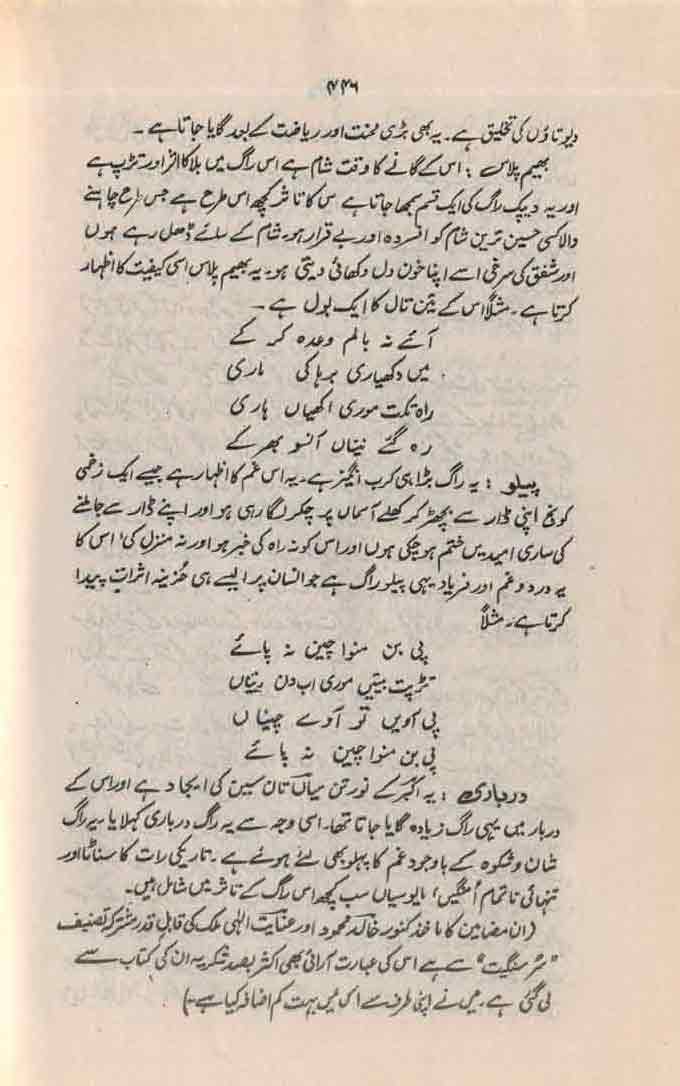 ۴۴۶
دیوتاؤں کی تخلیق ہے۔ یہ بھی بڑی محنت اور ریاضت کے بعد گایا جاتا ہے۔
بھیم پلاس : اس کے گانے کا وقت شام ہے اس راگ میں بلا کا اثر اور تڑپ ہے
اور یہ دیپک راگ کی ایک قسم سمجھا جاتا ہے س کا تاثر کچھ اس طرح ہے جس طرح چاہنے
والا کسی حسین ترین شام کو افسردہ اور بے قرار ہو، شام کے سائے ڈھل رہے ہوں
اور شفق کی سرخی اسے اپنا خون دل دکھائی دیتی ہو۔ یہ بھیم پلاس اسی کیفیت کا اظہار
کرتا ہے۔ مثلاً اس کے تین تال کا ایک بول ہے ۔
آئے نہ بالم وعدہ کر کے
میں دکھیاری برہا کی ماری
راہ تکت موری اکھیاں ہاری
رہ گئے نیناں آنسو بھر کے
پیلو : یہ راگ بڑا ہی کرب انگیز ہے۔ یہ اس غم کا اظہار ہے جیسے ایک زخمی
کونج اپنی ڈار سے بچھڑ کر کھلے آسماں پر چکر لگا رہی ہو اور اپنے ڈار سے جا ملنے
کی ساری امیدیں ختم ہو چکی ہوں اور اس کو نہ راہ کی خبر ہو اور نہ منزل کی، اس کا
یہ درد و غم اور فریاد یہی پیلو راگ ہے جو انسان پر ایسے ہی حُزینہ اثرات پیدا
کرتا ہے۔ مثلاً
پی بن منوا چین نہ پائے
تڑپت بیتیں موری اب دن ریتاں
پی آویں تو آوے چیناں
پی بن منوا چین نہ پائے
درباری : یہ اکبر کے نورتن میاں تان سین کی ایجاد ہے اور اس کے
دربار میں یہی راگ زیادہ گایا جاتا تھا۔ اسی وجہ سے یہ راگ درباری کہلایا۔ یہ راگ
شان و شکوہ کے باوجود غم کا پہلو بھی لئے ہوئے ہے۔ تاریکی رات کا سناٹا اور
تنہائی ناتمام اُمنگیں، مایوسیاں سب کچھ اس راگ کے تاثر میں شامل ہیں۔
(ان مضامین کا ماخذ کنور خالد محمود اور عنایت الٰہی ملک کی قابلِ قدر مشترکہ تصنیف
"سُر سنگیت" سے ہے اس کی عبارت آرائی بھی اکثر بصد شکریہ ان کی کتاب سے
لی گئی ہے۔ میں نے اپنی طرف سے اس میں بہت کم اضافہ کیا ہے۔)